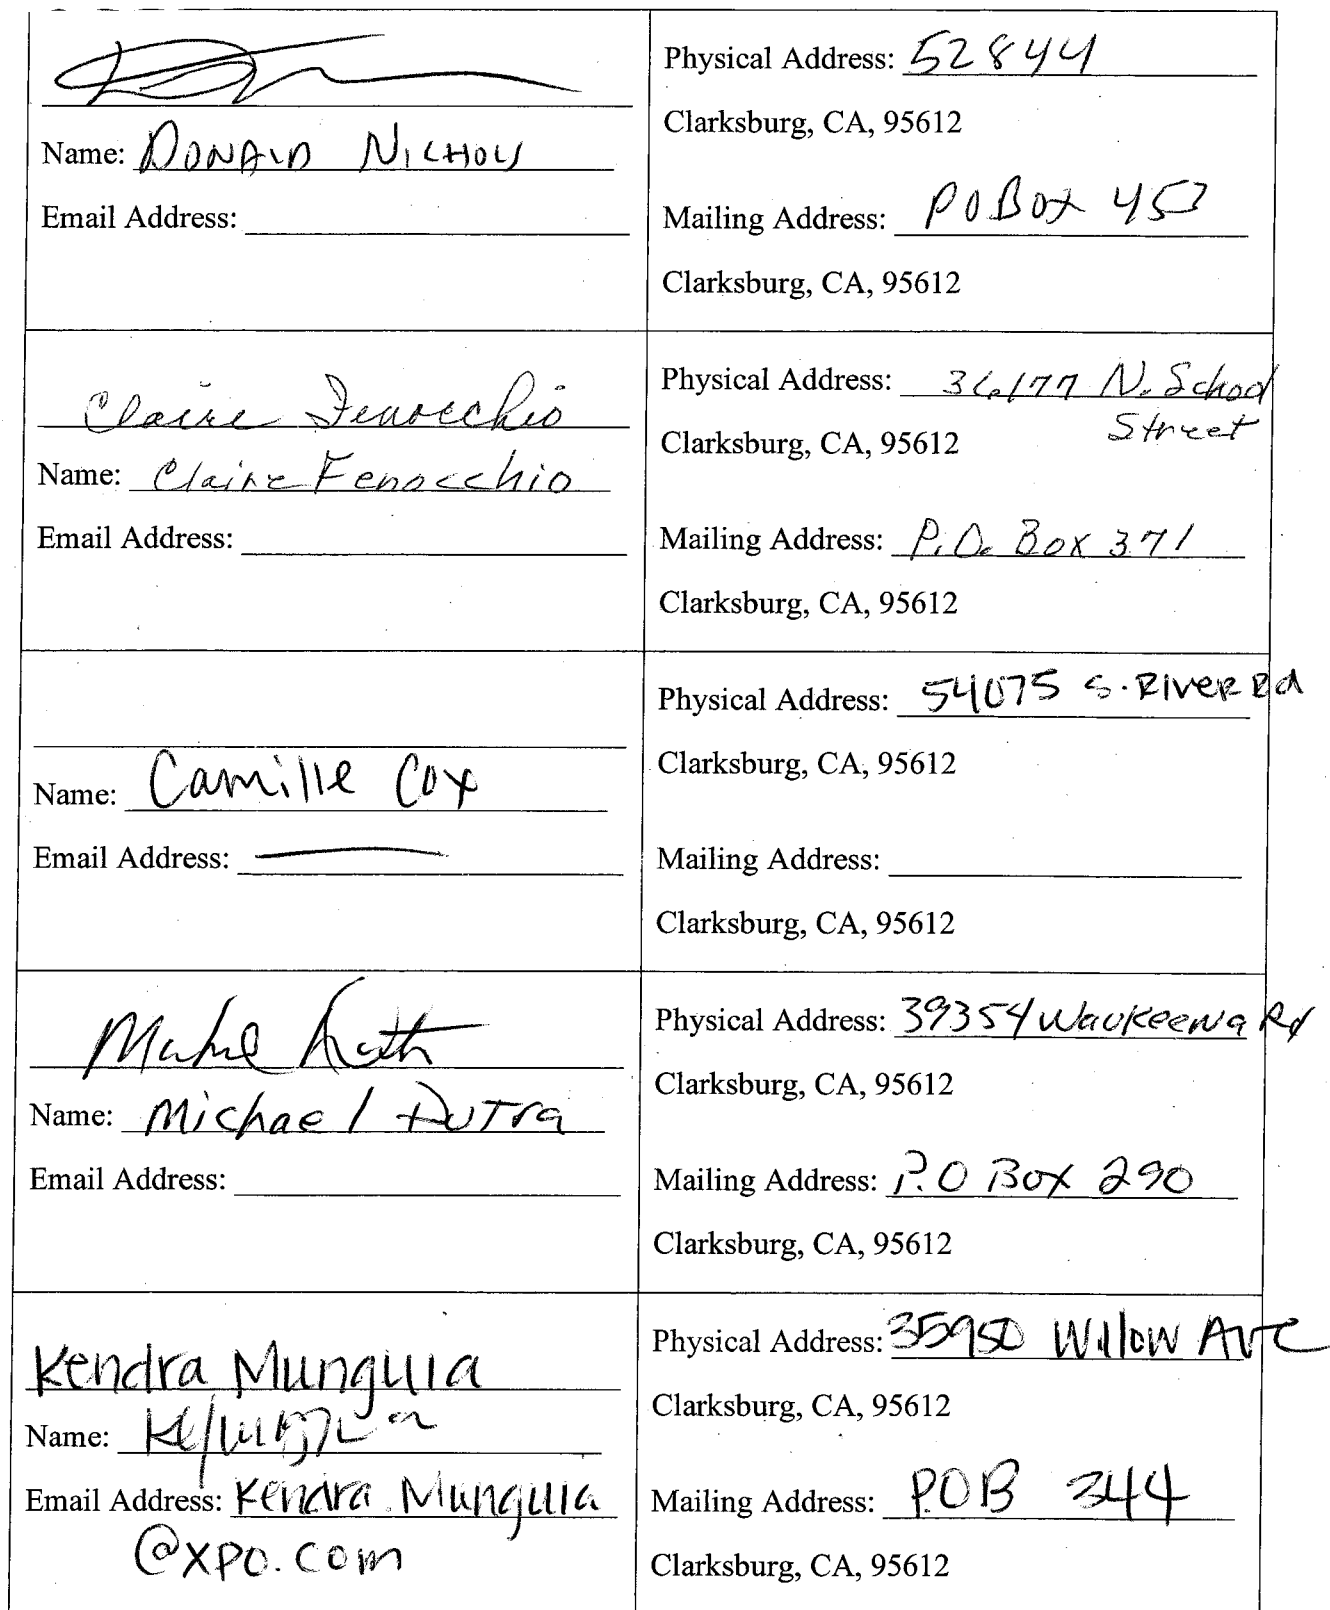 Physical Address: 52844
Clarksburg, CA, 95612
Name: DONALD NICHOLS
Email Address:
Mailing Address: PO Box 453
Clarksburg, CA, 95612
Claire Fenocchio
Name: Claire Fenocchio
Email Address:
Physical Address: 36177 N. School
Street
Clarksburg, CA, 95612
Mailing Address: P.O. Box 371
Clarksburg, CA, 95612
Name: Camille Cox
Email Address:
Physical Address: 54075 S. River Rd
Clarksburg, CA, 95612
Mailing Address:
Clarksburg, CA, 95612
Name: Michael Dutra
Email Address:
Physical Address: 39354 Waukeena Rd
Clarksburg, CA, 95612
Mailing Address: P.O Box 290
Clarksburg, CA, 95612
Kendra Munguia
Name:
Email Address: Kendra.Munguia
@xpo.com
Physical Address: 35950 Willow Ave
Clarksburg, CA, 95612
Mailing Address: POB 344
Clarksburg, CA, 95612